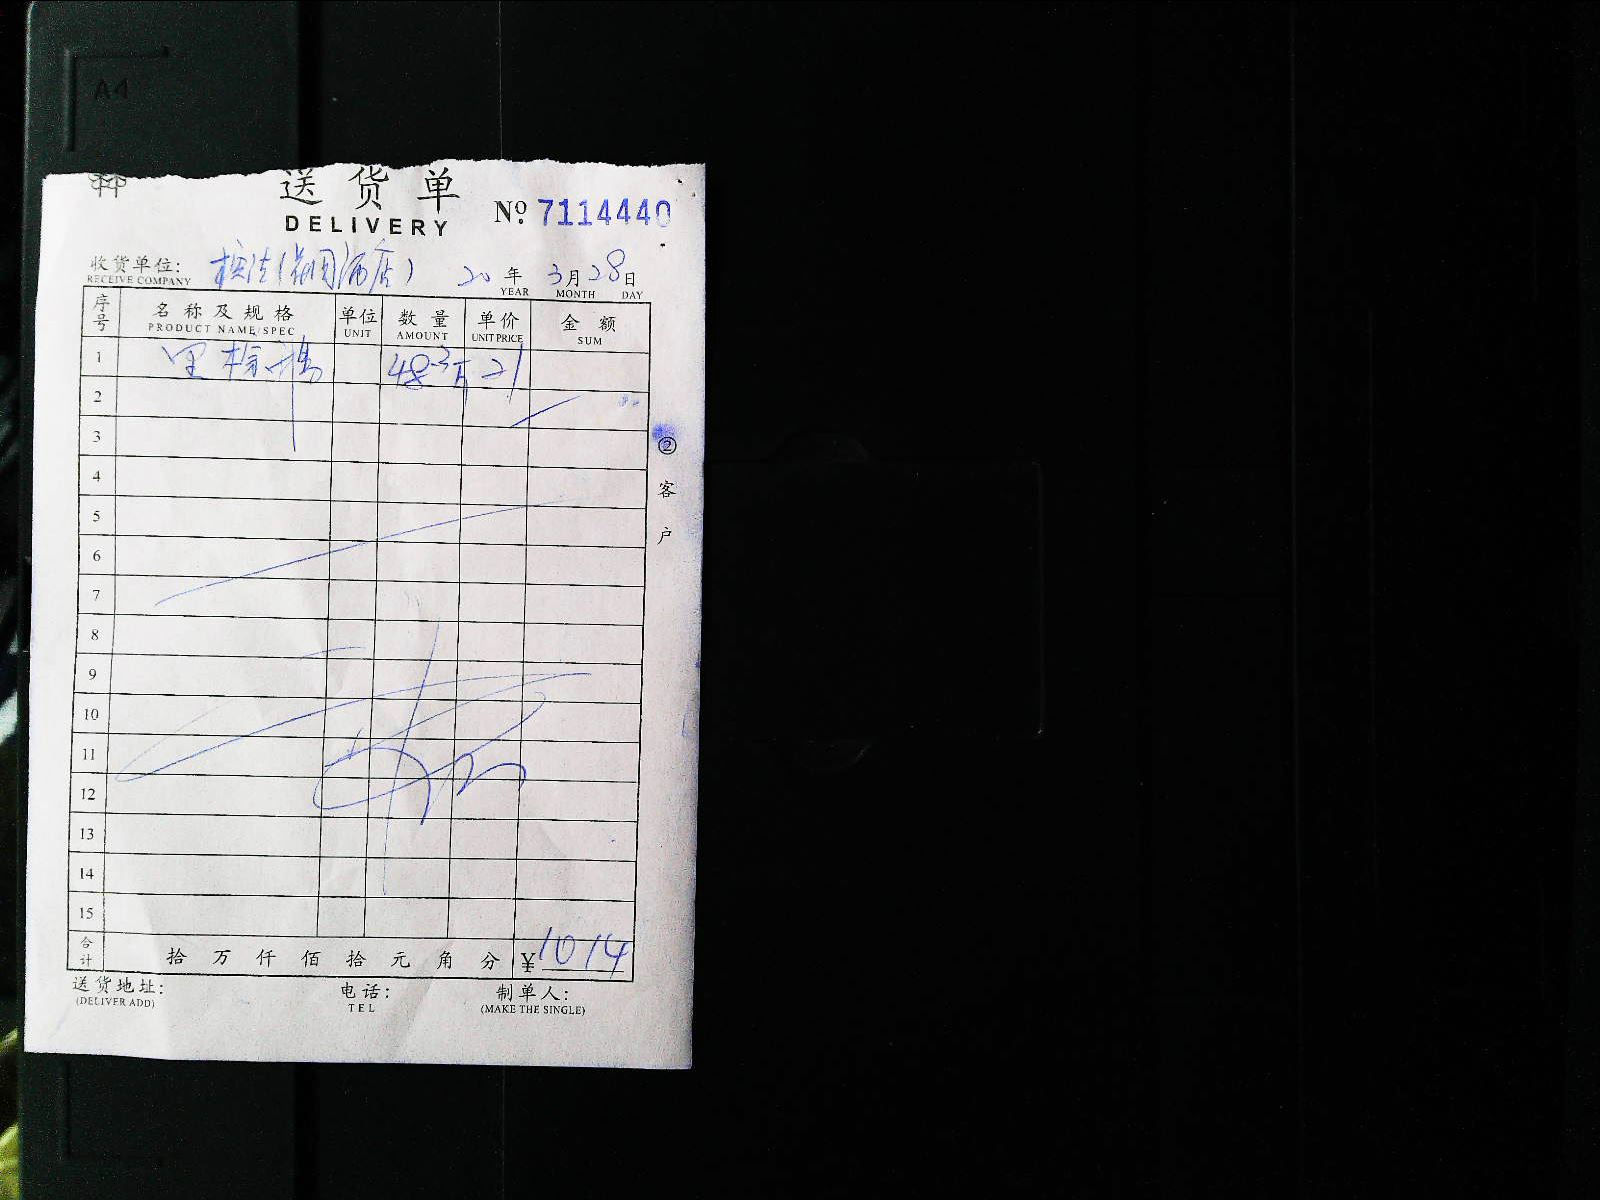 A4
送货单
DELIVERY
No. 7114440
收货单位: (花园酒店) 20年 3月28日
RECEIVE COMPANY YEAR MONTH DAY
序号 名称及规格 单位 数量 单价 金额
PRODUCT NAME/SPEC UNIT AMOUNT UNIT PRICE SUM
1 48 21
2
3
4
5
6
7
8
9
10
11
12
13
14
15
合计 拾 万 仟 佰 拾 元 角 分 ¥1014
送货地址: 电话: 制单人:
(DELIVER ADD) TEL (MAKE THE SINGLE)
②客户